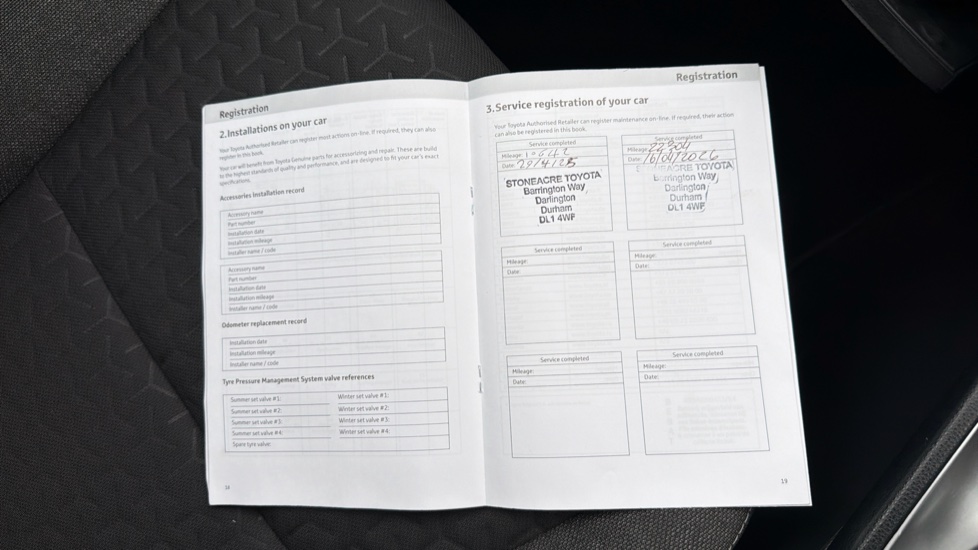 Registration
2.Installations on your car
Your Toyota Authorised Retailer can register most actions on-line. If required, they can also
register in this book.
Your car will benefit from Toyota Genuine parts for accessorizing and repair. These are build
to the highest standards of quality and performance, and are designed to fit your car's exact
specifications.
Accessories Installation record
Accessory name
Part number
Installation date
Installation mileage
Installer name / code
Accessory name
Part number
Installation date
Installation mileage
Installer name / code
Odometer replacement record
Installation date
Installation mileage
Installer name / code
Tyre Pressure Management System valve references
Summer set valve #1: Winter set valve #1:
Summer set valve #2: Winter set valve #2:
Summer set valve #3: Winter set valve #3:
Summer set valve #4: Winter set valve #4:
Spare tyre valve:
Registration
3.Service registration of your car
Your Toyota Authorised Retailer can register maintenance on-line. If required, their action
can also be registered in this book.
Service completed
Mileage:
Date: 29/4/25
STONEACRE TOYOTA
Barrington Way
Darlington
Durham
DL1 4WF
Service completed
Mileage: 22304
Date: 16/04/2026
TOYOTA
Way
Darlington
Durham
DL1 4WF
Service completed
Mileage:
Date:
Service completed
Mileage:
Date:
Service completed
Mileage:
Date:
Service completed
Mileage:
Date:
19